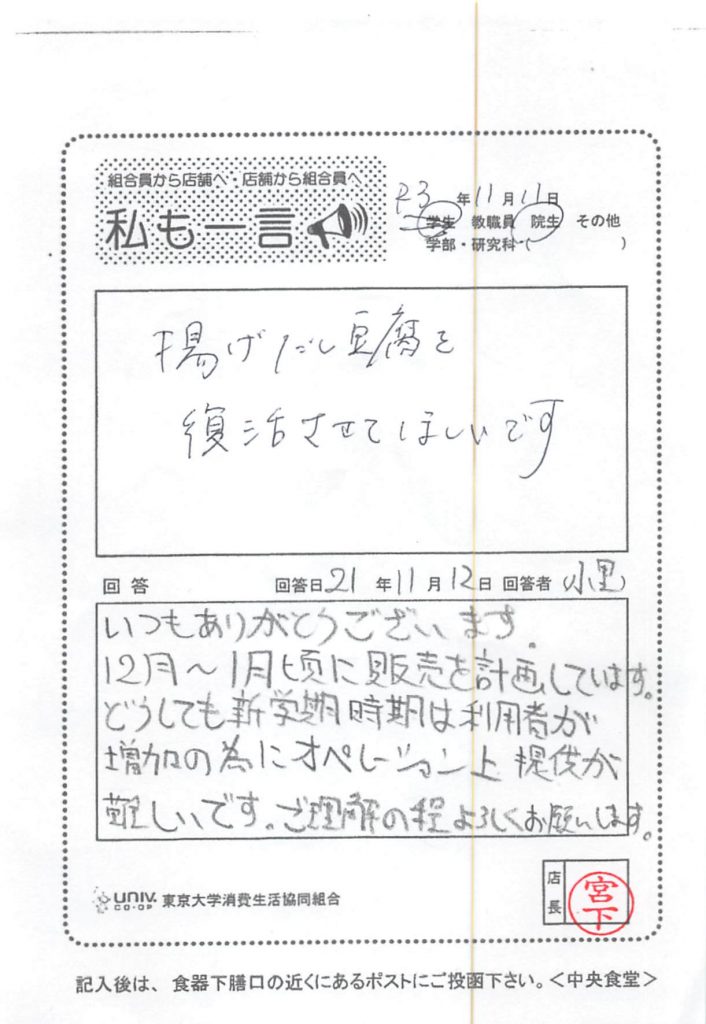 組合員から店舗へ・店舗から組合員へ
私も一言
R3年11月11日
学生 教職員 院生 その他
学部・研究科・( )
揚げだし豆腐を
復活させてほしいです
回答 回答日21年11月12日 回答者(小里)
いつもありがとうございます。
12月〜1月頃に販売を計画しています。
どうしても新学期時期は利用者が
増加の為にオペレーション上提供が
難しいです。ご理解の程よろしくお願いします。
UNIV. CO-OP 東京大学消費生活協同組合
店長 宮下
記入後は、食器下膳口の近くにあるポストにご投函下さい。<中央食堂>